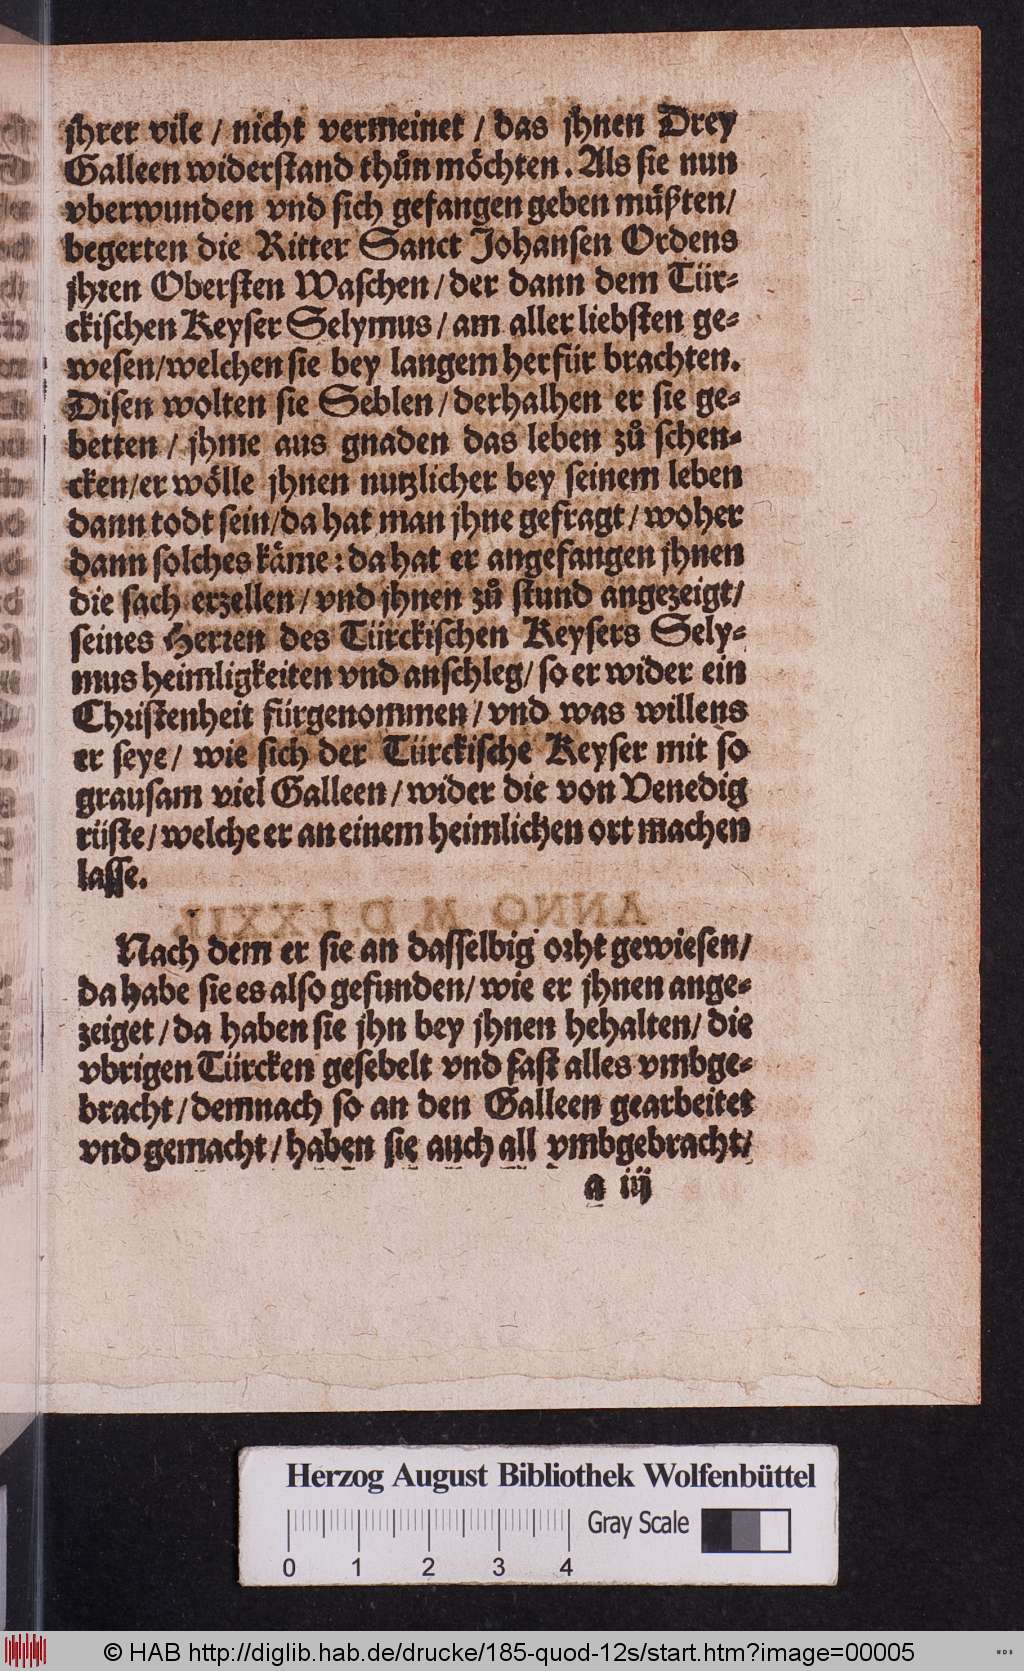 jhrer vile / nicht vermeinet / das jhnen Drey
Galleen widerstand thůn möchten. Als sie nun
vberwunden vnd sich gefangen geben müßten/
begerten die Ritter Sanct Johansen Ordens
jhren Obersten Waschen / der dann dem Tür-
ckischen Keyser Selymus / am aller liebsten ge-
wesen/welchen sie bey langem herfür brachten.
Disen wolten sie Seblen / derhalhen er sie ge-
betten / jhme aus gnaden das leben zů schen-
cken/er wölle jhnen nutzlicher bey seinem leben
dann todt sein/da hat man jhne gefragt / woher
dann solches käme : da hat er angefangen jhnen
die sach erzellen / vnd jhnen zů stund angezeigt/
seines Herren des Türckischen Keysers Sely-
mus heimligkeiten vnd anschleg/ so er wider ein
Christenheit fürgenommen / vnd was willens
er seye / wie sich der Türckische Keyser mit so
grausam viel Galleen / wider die von Venedig
rüste / welche er an einem heimlichen ort machen
lasse.
Nach dem er sie an dasselbig orht gewiesen/
da habe sie es also gefunden/ wie er jhnen ange-
zeiget / da haben sie jhn bey jhnen hehalten/ die
vbrigen Türcken gesebelt vnd fast alles vmbge-
bracht / demnach so an den Galleen gearbeitet
vnd gemacht / haben sie auch all vmbgebracht/
a iij
Herzog August Bibliothek Wolfenbüttel
Gray Scale
0 1 2 3 4
© HAB http://diglib.hab.de/drucke/185-quod-12s/start.htm?image=00005